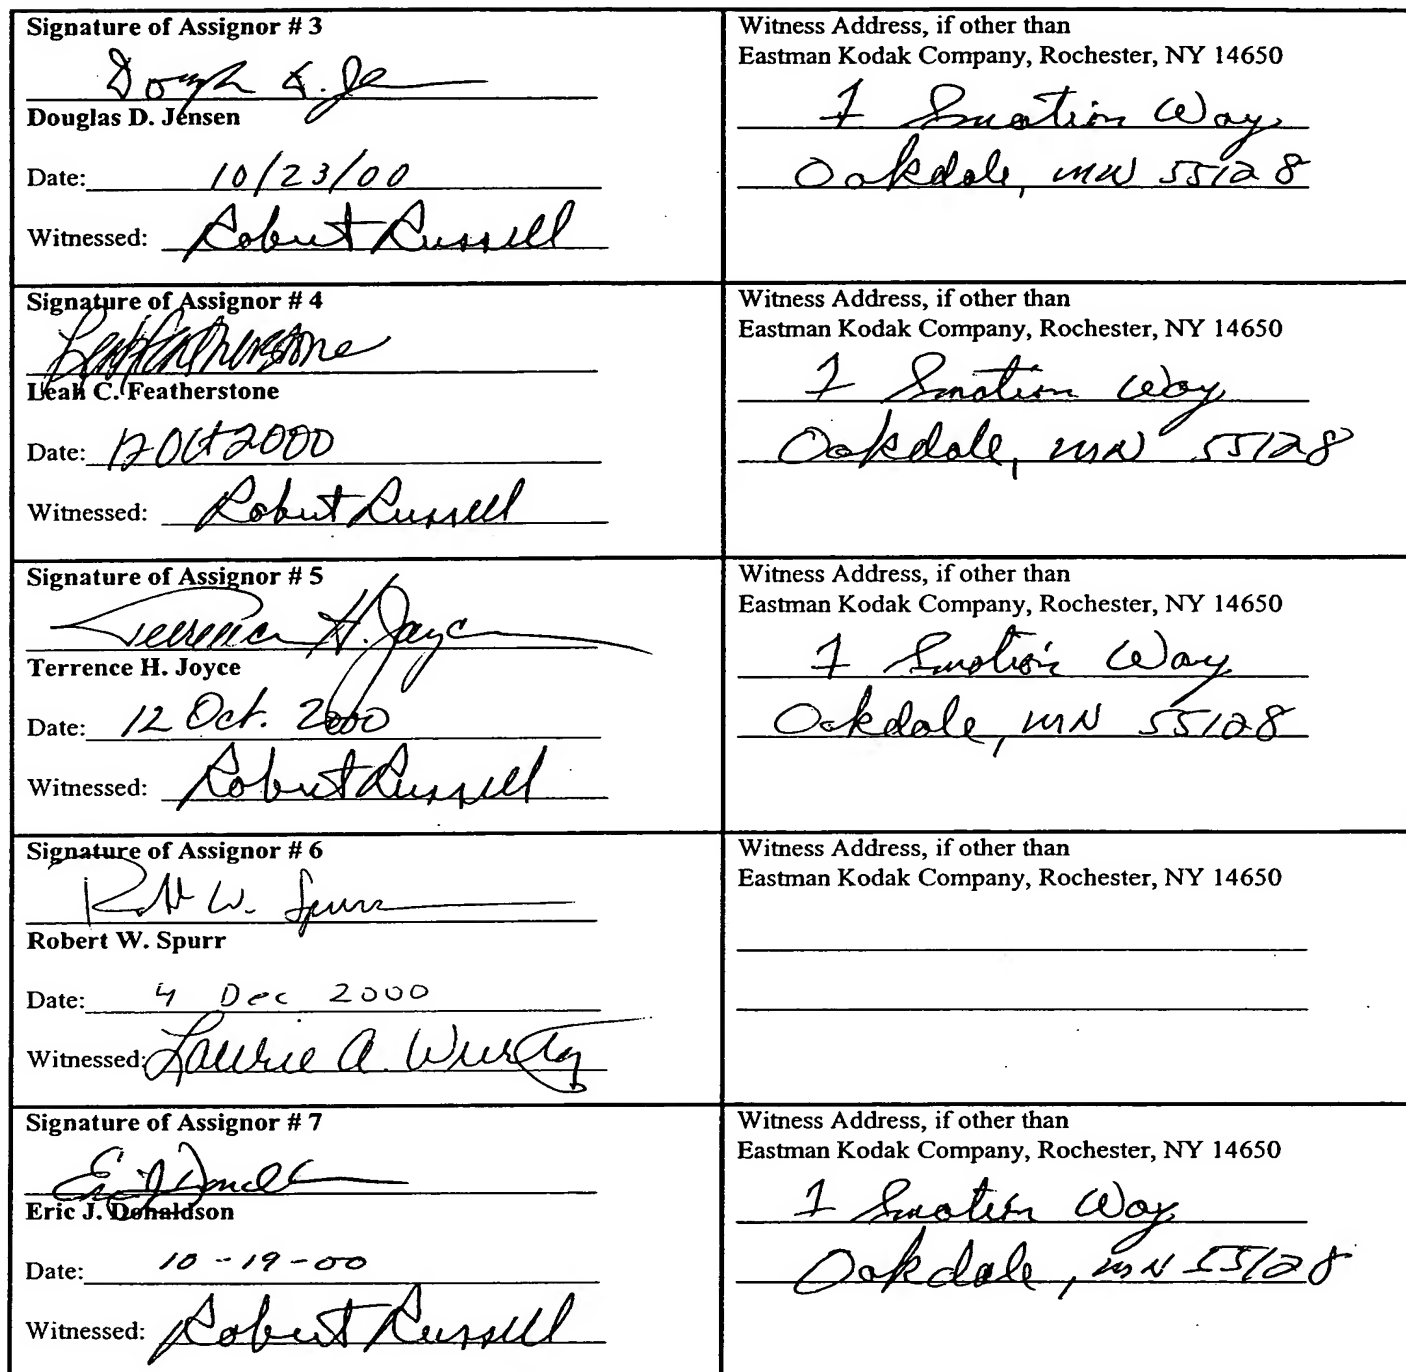 Signature of Assignor # 3
Douglas D. Jensen
Date: 10/23/00
Witnessed: Robert Russell
Witness Address, if other than
Eastman Kodak Company, Rochester, NY 14650
1 Way
Oakdale, MN 55128
Signature of Assignor # 4
Leah Featherstone
Leah C. Featherstone
Date: 12 Oct 2000
Witnessed: Robert Russell
Witness Address, if other than
Eastman Kodak Company, Rochester, NY 14650
1 Way
Oakdale, MN 55128
Signature of Assignor # 5
Terrence H. Joyce
Terrence H. Joyce
Date: 12 Oct. 2000
Witnessed: Robert Russell
Witness Address, if other than
Eastman Kodak Company, Rochester, NY 14650
1 Way
Oakdale, MN 55128
Signature of Assignor # 6
W. Spurr
Robert W. Spurr
Date: 4 Dec 2000
Witnessed: Laurie A.
Witness Address, if other than
Eastman Kodak Company, Rochester, NY 14650
Signature of Assignor # 7
Eric J. Donaldson
Date: 10-19-00
Witnessed: Robert Russell
Witness Address, if other than
Eastman Kodak Company, Rochester, NY 14650
1 Way
Oakdale, MN 55128